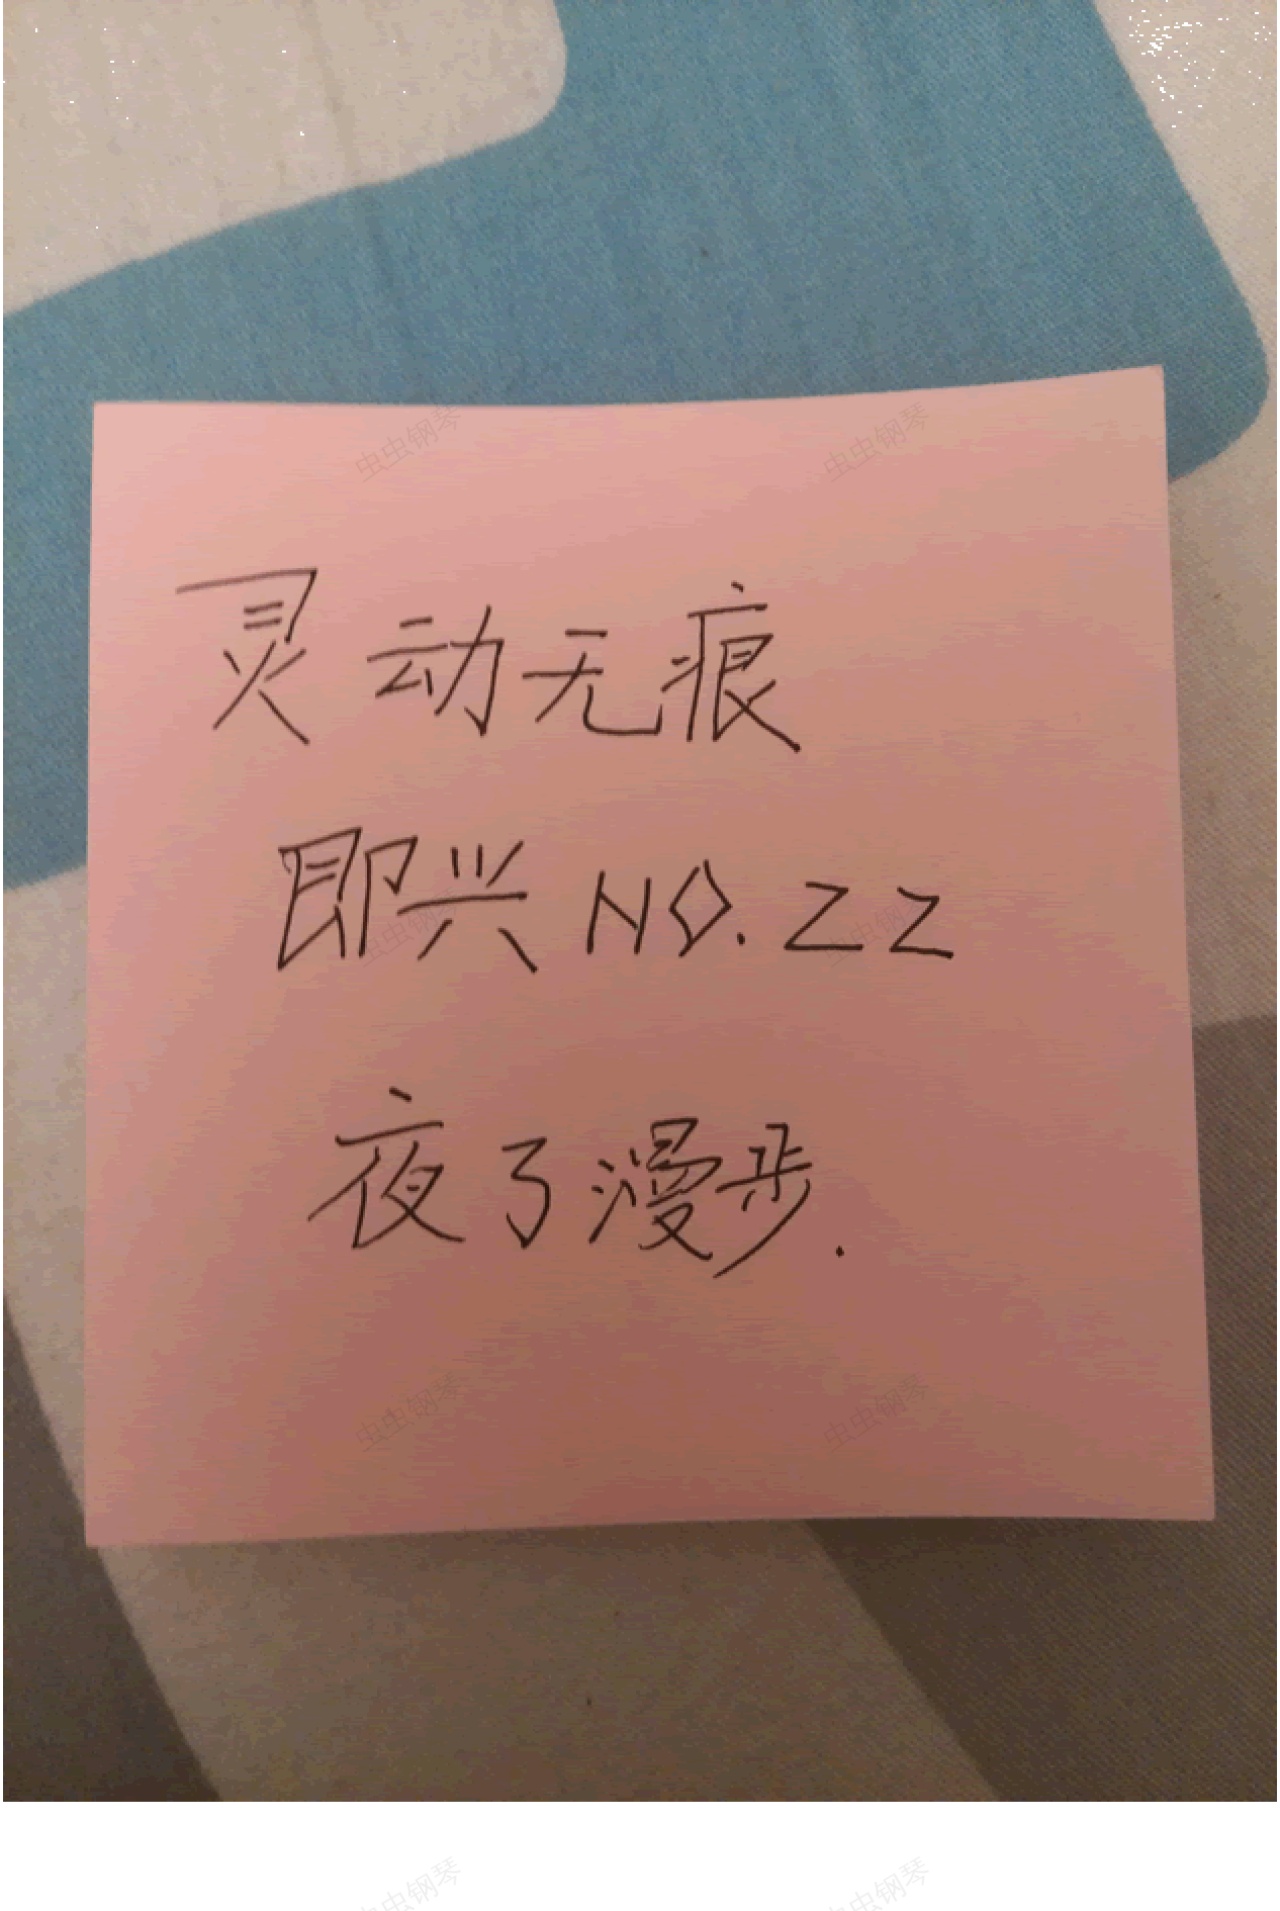 虫虫钢琴 虫虫钢琴
灵动无痕
即兴 NO.22
虫虫钢琴 虫虫钢琴
夜了漫步.
虫虫钢琴 虫虫钢琴
虫虫钢琴 虫虫钢琴